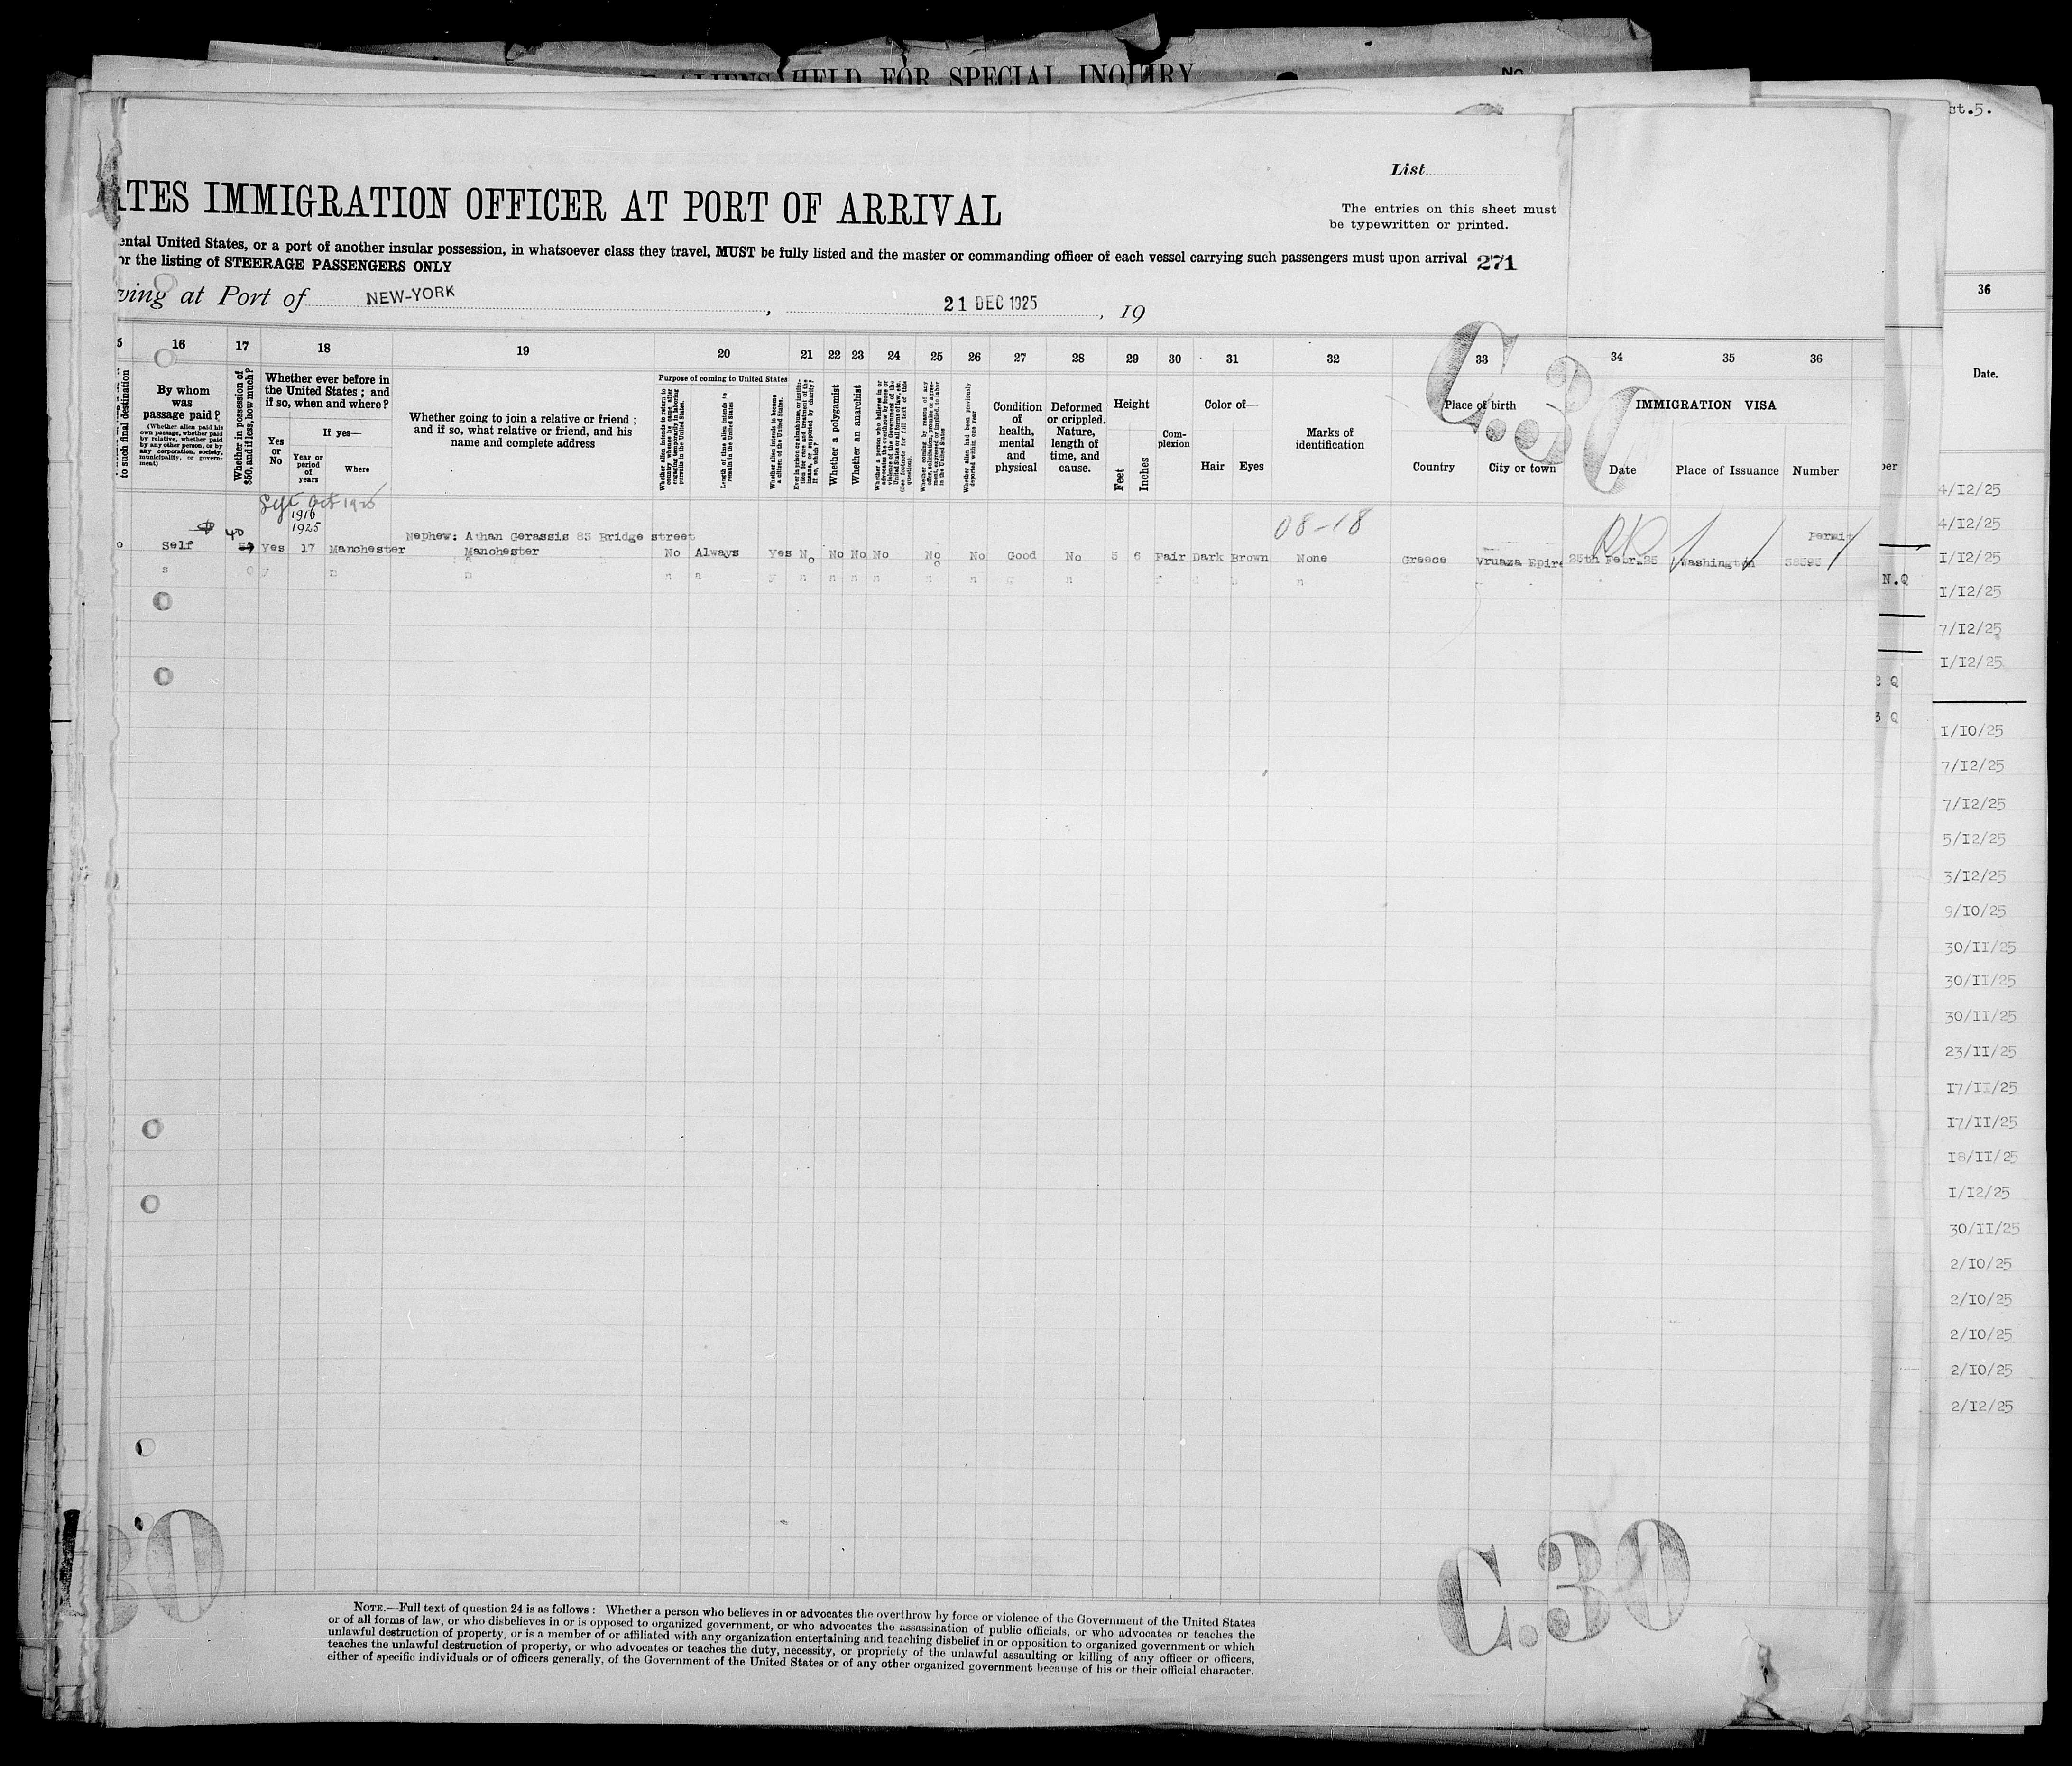 ALIENS HELD FOR SPECIAL INQUIRY
No.
st.5.
List
ATES IMMIGRATION OFFICER AT PORT OF ARRIVAL
The entries on this sheet must
be typewritten or printed.
ental United States, or a port of another insular possession, in whatsoever class they travel, MUST be fully listed and the master or commanding officer of each vessel carrying such passengers must upon arrival
271
or the listing of STEERAGE PASSENGERS ONLY
ving at Port of NEW-YORK , 21 DEC 1925 , 19
5 16 17 18 19 20 21 22 23 24 25 26 27 28 29 30 31 32 33 34 35 36
to such final destination
By whom
was
passage paid?
(Whether alien paid his
own passage, whether paid
by relative, whether paid
by any other person, or by
any corporation, society,
municipality, or govern-
ment)
Whether in possession of
$50, and if less, how much?
Whether ever before in
the United States; and
if so, when and where?
Yes
or
No
If yes—
Year or
period
of
years
Where
Whether going to join a relative or friend;
and if so, what relative or friend, and his
name and complete address
Purpose of coming to United States
Whether alien intends to return to
country whence he came after
engaging temporarily in laboring
pursuits in the United States.
Length of time alien intends to
remain in the United States
Whether alien intends to become
a citizen of the United States.
Ever in prison or almshouse or institu-
tion for care and treatment of the
insane, or supported by charity?
If so, which?
Whether a polygamist
Whether an anarchist
Whether a person who believes in or
advocates the overthrow by force or
violence of the Government of the
United States or all forms of law, &c.
(See footnote for full text of this
question).
Whether coming by reason of any
offer, solicitation, promise or agree-
ment, expressed or implied, to labor
in the United States
Whether alien had been previously
deported within one year
Condition
of
health,
mental
and
physical
Deformed
or crippled.
Nature,
length of
time, and
cause.
Height
Feet
Inches
Com-
plexion
Color of—
Hair Eyes
Marks of
identification
Place of birth
Country City or town
IMMIGRATION VISA
Date Place of Issuance Number
C.30
Sept Oct 1925
1916
1925
$ 40
08-18
Permit
Nephew: Athan Gerassis 83 Bridge street
o Self Yes 17 Manchester Manchester No Always Yes No No No No No No Good No 5 6 Fair Dark Brown None Greece Vruaza Epire 25th Febr.25 Washington 58595
s y n n n a y n n n n n g n f d n
36
Date.
ber
4/12/25
4/12/25
1/12/25
N.Q
1/12/25
7/12/25
1/12/25
2 Q
3 Q
1/10/25
7/12/25
7/12/25
5/12/25
3/12/25
9/10/25
30/11/25
30/11/25
30/11/25
23/11/25
17/11/25
17/11/25
18/11/25
1/12/25
30/11/25
2/10/25
2/10/25
2/10/25
2/10/25
2/12/25
30
C.30
NOTE.—Full text of question 24 is as follows: Whether a person who believes in or advocates the overthrow by force or violence of the Government of the United States
or of all forms of law, or who disbelieves in or is opposed to organized government, or who advocates the assassination of public officials, or who advocates or teaches the
unlawful destruction of property, or is a member of or affiliated with any organization entertaining and teaching disbelief in or opposition to organized government or which
teaches the unlawful destruction of property, or who advocates or teaches the duty, necessity, or propriety of the unlawful assaulting or killing of any officer or officers,
either of specific individuals or of officers generally, of the Government of the United States or of any other organized government because of his or their official character.